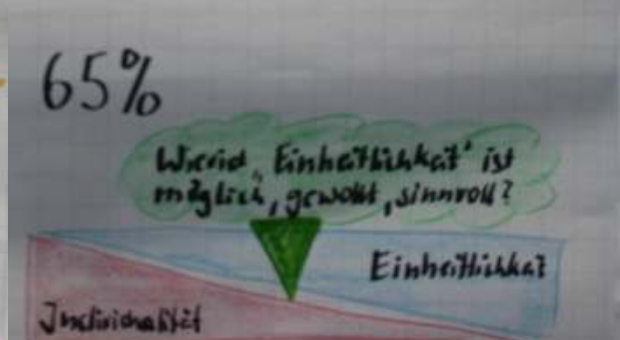 65%
Wieviel „Einheitlichkeit" ist
möglich, gewollt, sinnvoll?
Einheitlichkeit
Individualität